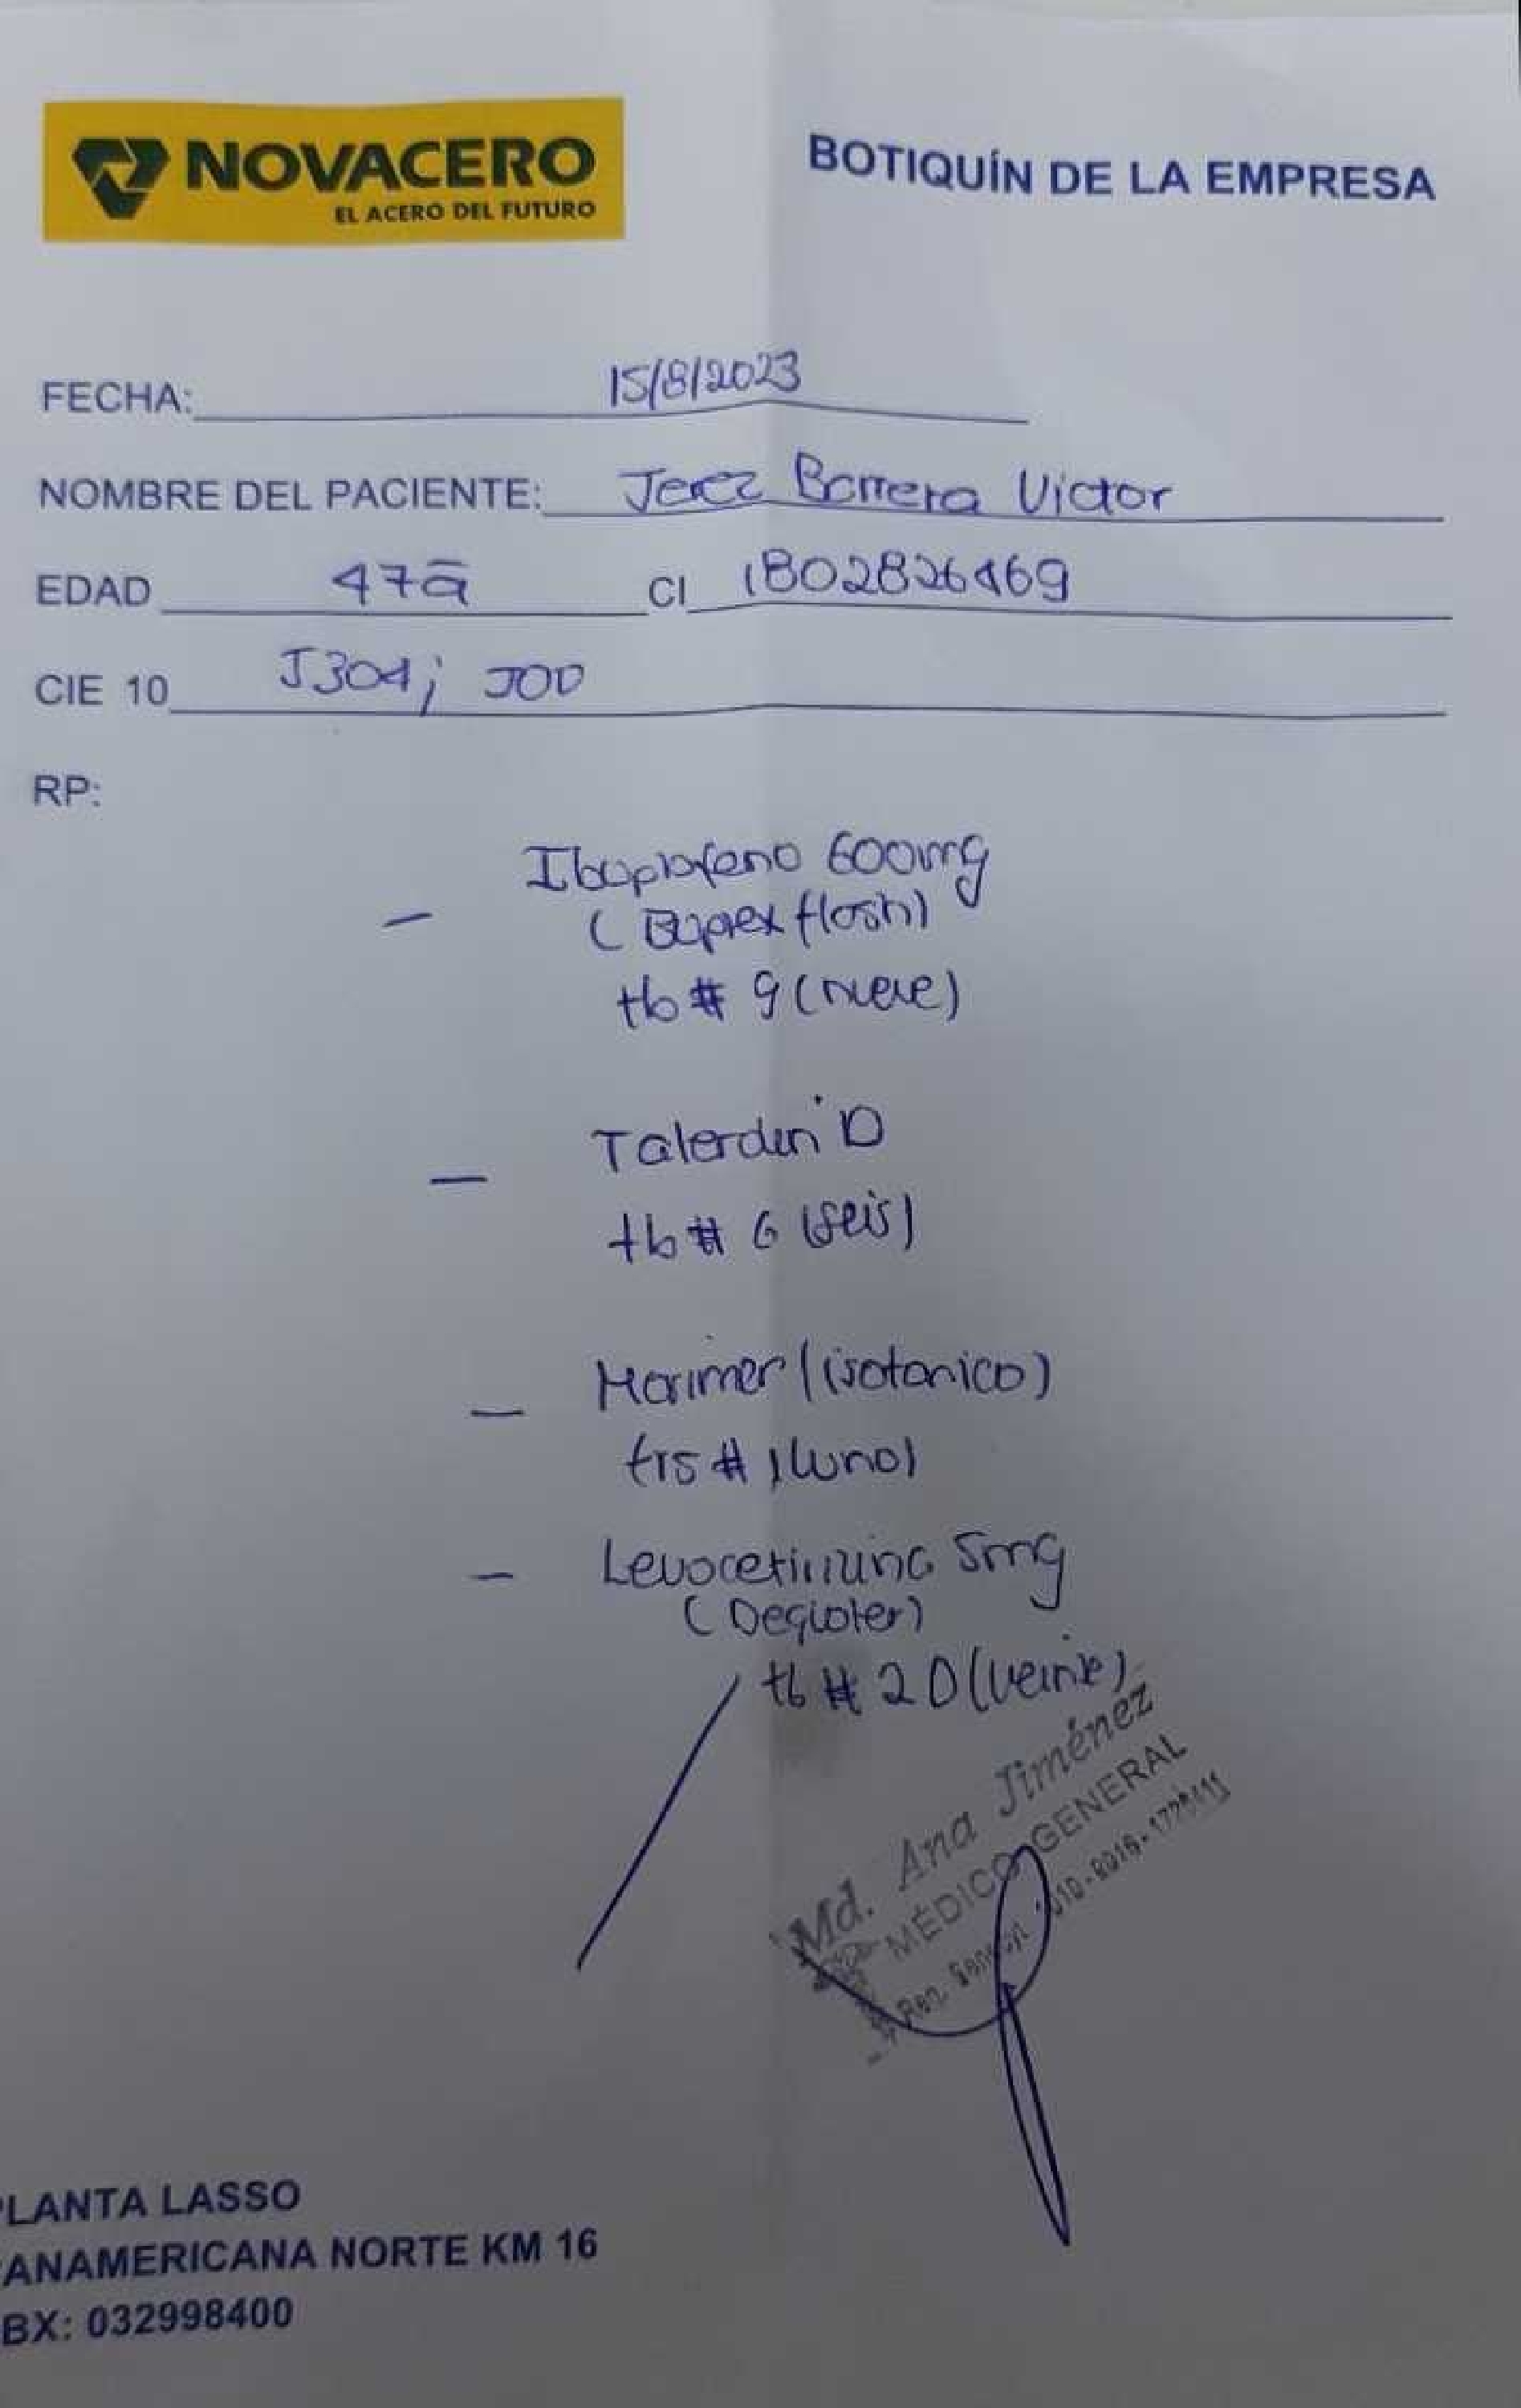 NOVACERO
EL ACERO DEL FUTURO
BOTIQUÍN DE LA EMPRESA
FECHA: 15/8/2023
NOMBRE DEL PACIENTE: Jerez Barrera Victor
EDAD 47a CI 1802826469
CIE 10 J304; J00
RP:
- Ibuprofeno 600mg
(Buprex flash)
tb # 9 (nueve)
- Talerdin D
tb # 6 (seis)
- Marimer (isotonico)
frs # 1 (uno)
- Levocetirizina 5mg
tb # 20 (veinte)
Md. Ana Jiménez
MÉDICO GENERAL
PLANTA LASSO
PANAMERICANA NORTE KM 16
PBX: 032998400